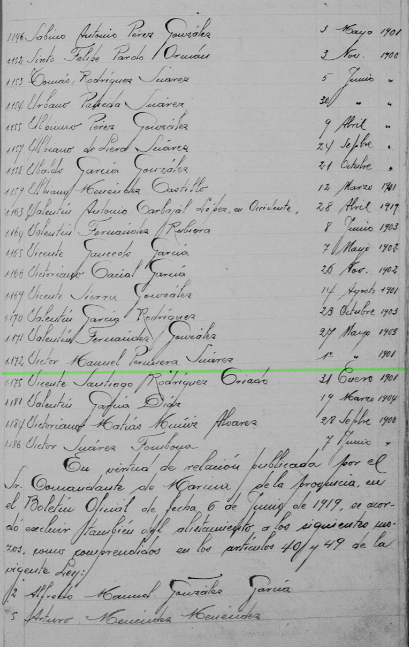 1146 Sabino Antonio Perez Gonzalez 3 Mayo 1901
1152 Sixto Felipe Pardo Ormán 3 Nov. 1900
1153 Tomás Rodriguez Suarez 5 Junio "
1154 Urbano Pañeda Suárez 30 " "
1155 Ulbiano Perez González 9 Abril "
1157 Ulbiano de Lera Suárez 24 Sepbre "
1158 Ubaldo Garcia Gonzalez 21 Octubre "
1159 Ulbiano Menéndez Castillo 12 Marzo 1901
1163 Valentin Antonio Carbajal López, en Occidente, 28 Abril 1919
1164 Valentin Fernandez Rubiera 8 Junio 1903
1165 Vicente García 7 Mayo 1902
1166 Victoriano Canal García 26 Nov. 1902
1169 Vicente Sierra González 14 Agosto 1901
1170 Valentin Garcia Rodriguez 23 Octubre 1903
1171 Valentin Fernandez González 27 Mayo 1903
1172 Victor Manuel Suárez 1º " 1901
1175 Vicente Santiago Rodriguez Criado 31 Enero 1901
1181 Valentin García Díaz 19 Marzo 1904
1184 Victoriano Matías Muñiz Alvarez 28 Sepbre 1900
1186 Victor Suárez Fombona 7 Junio "
En virtud de relación publicada por el
Sr. Comandante de Marina de la provincia, en
el Boletin Oficial de fecha 6 de Junio de 1919, se acor-
dó excluir también del alistamiento, a los siguientes mo-
zos, como comprendidos en los articulos 40 y 49 de la
vigente Ley:
2 Alfredo Manuel González García
5 Arturo Menéndez Menéndez